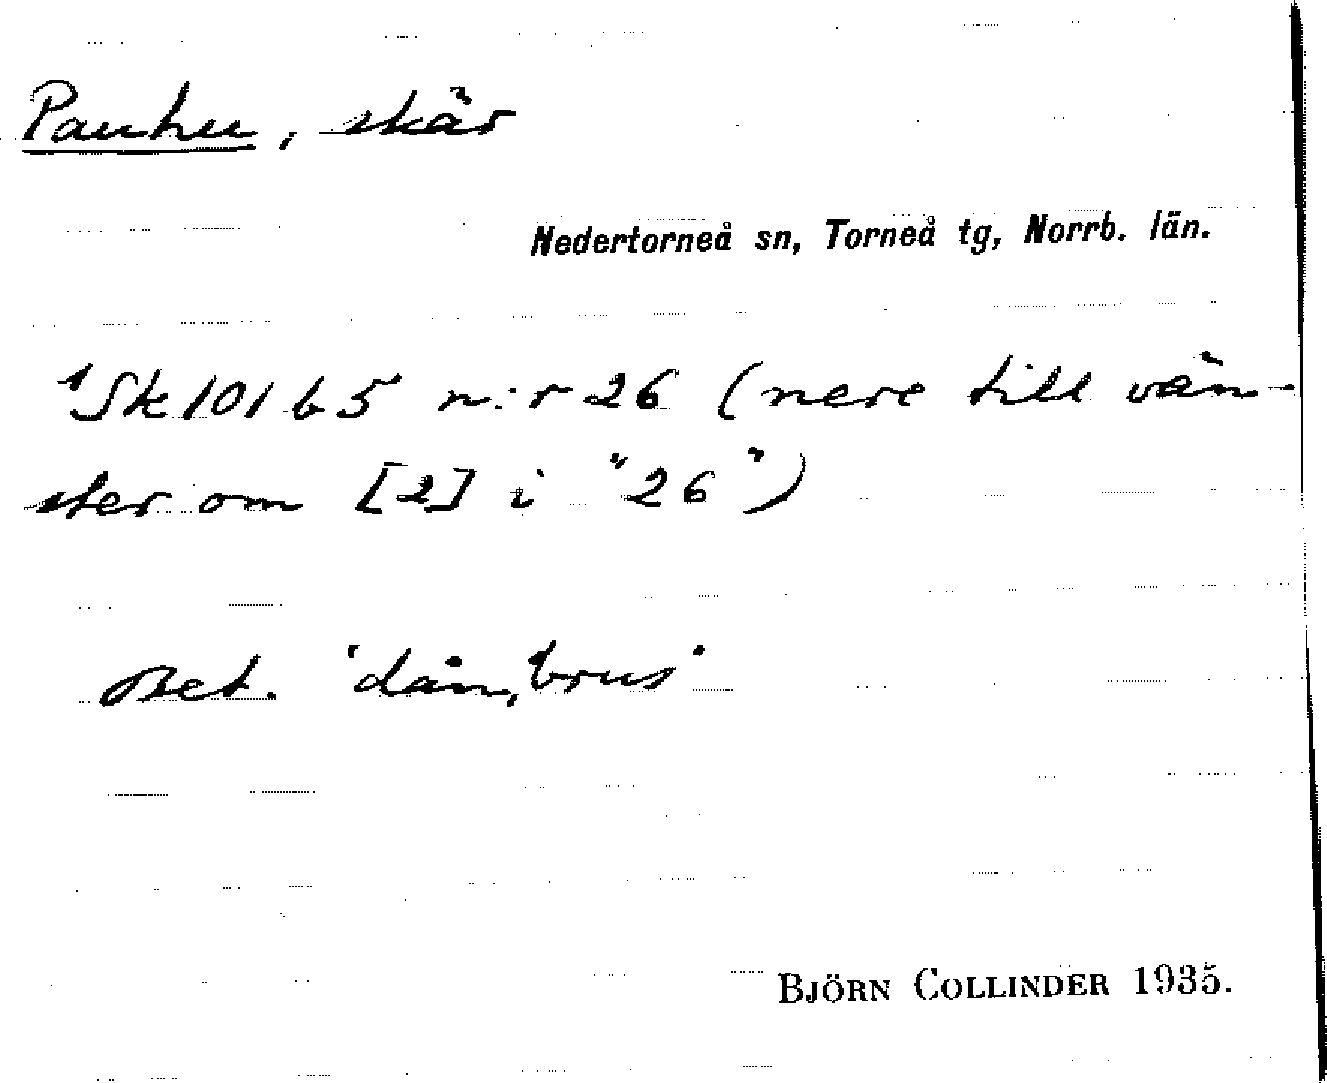 Pauhu, skär
Nedertorneå sn, Torneå tg, Norrb. län.
1Sk 101 b 5 n:r 26 (nere till vän-
ster om [2] i "26")
Bet. 'dån, brus'
BJÖRN COLLINDER 1935.